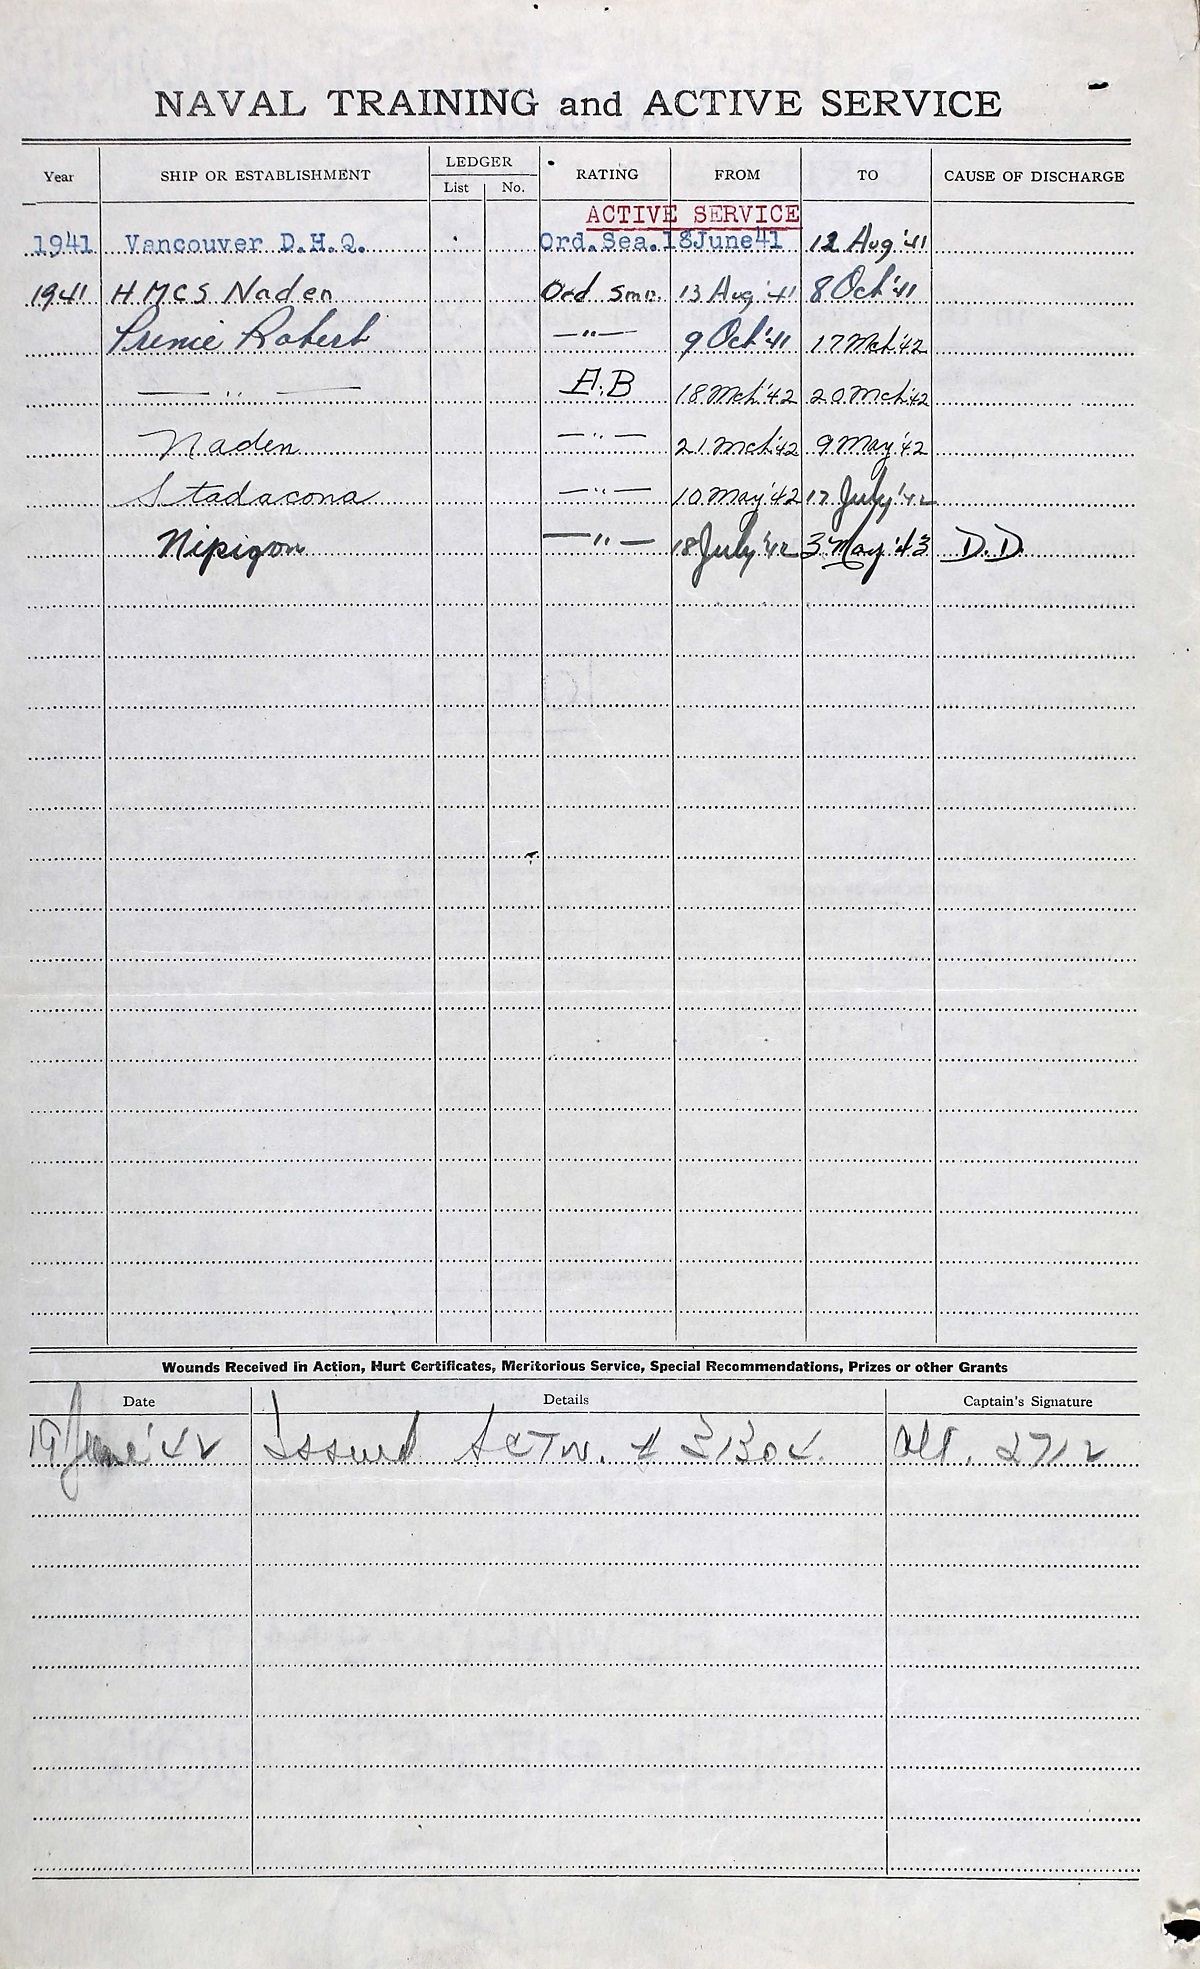 NAVAL TRAINING and ACTIVE SERVICE
Year SHIP OR ESTABLISHMENT LEDGER List No. RATING FROM TO CAUSE OF DISCHARGE
ACTIVE SERVICE
1941 Vancouver D.H.Q. Ord.Sea. 18June41 12 Aug '41
1941 HMCS Naden Ord Smn. 13 Aug '41 8 Oct '41
Prince Robert —"— 9 Oct '41 17 Mch '42
— " — A.B 18 Mch '42 20 Mch '42
Naden — " — 21 Mch '42 9 May '42
Stadacona — " — 10 May '42 17 July '42
Nipigon — " — 18 July '42 3 May '43 D.D.
Wounds Received in Action, Hurt Certificates, Meritorious Service, Special Recommendations, Prizes or other Grants
Date Details Captain's Signature
19 June '42 Issued # 31304. 2712